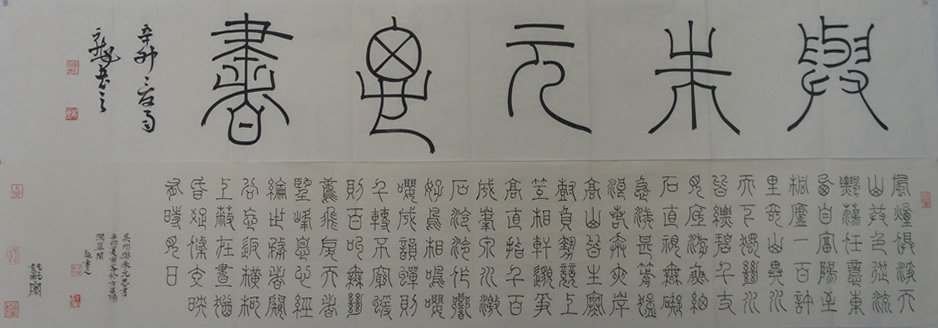 與朱元思書
辛卯
風煙俱淨天
山共色從流
飄蕩任意東
西自富陽至
桐廬一百許
里奇山異水
天下獨絕水
皆縹碧千丈
見底游魚細
石直視無礙
急湍甚箭猛
浪若奔夾岸
高山皆生寒
樹負勢競上
互相軒邈爭
高直指千百
成峯泉水激
石泠泠作響
好鳥相鳴嚶
嚶成韻蟬則
千轉不窮猨
則百叫無絕
鳶飛戾天者
望峯息心經
綸世務者窺
谷忘返橫柯
上蔽在晝猶
昏疏條交映
有時見日
吳均與朱元思書